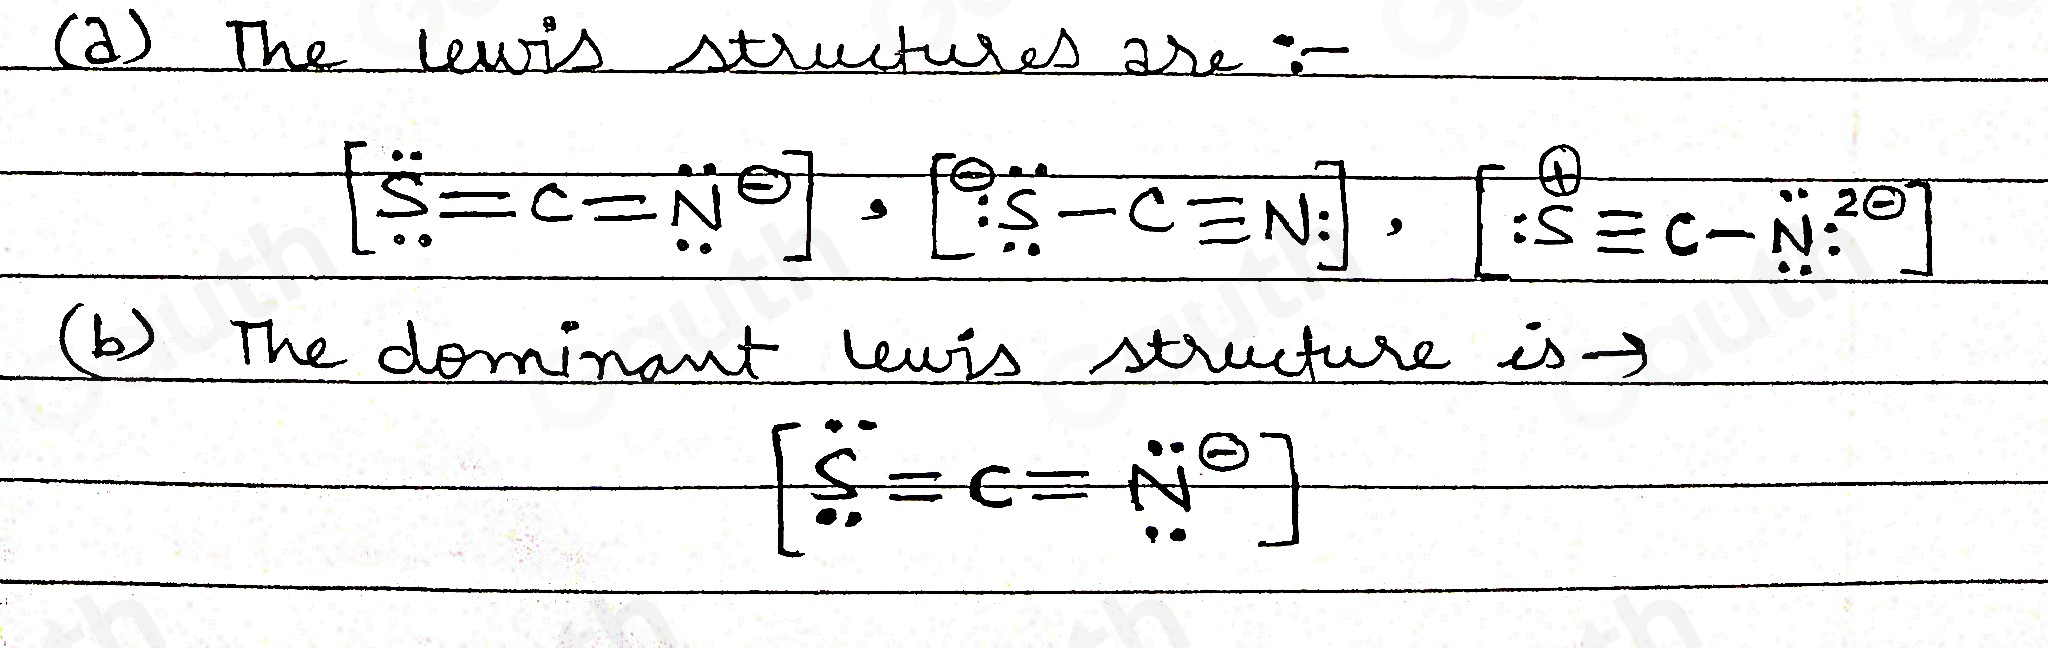 (a) The lewis structures are :-
[S̤̈=C=N̤̈⊖], [⊖:S̤̈-C≡N:], [:S⊕≡C-N̤̈:2⊖]
(b) The dominant lewis structure is →
[S̤̈=C=N̤̈⊖]